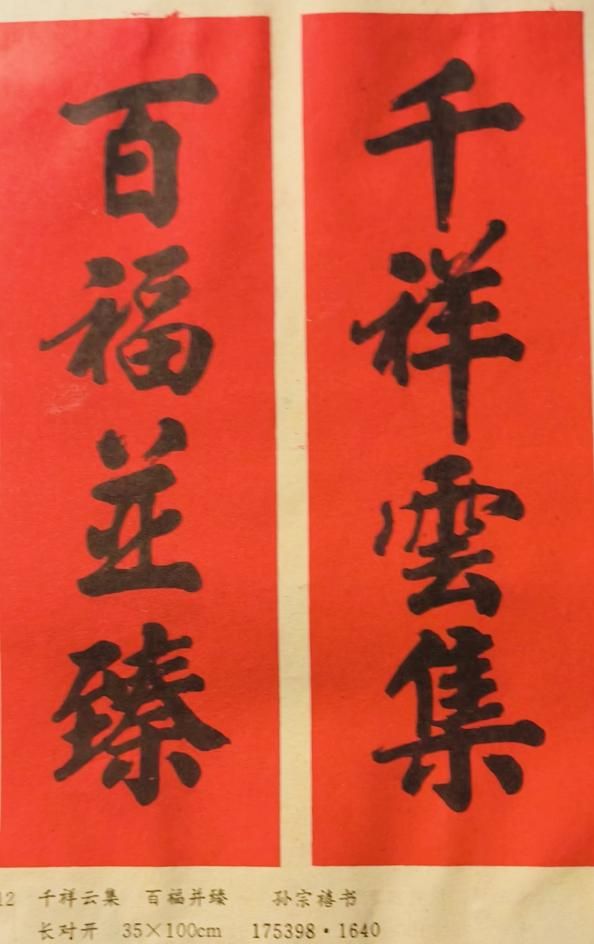 千祥雲集
百福並臻
12 千祥云集 百福并臻 孙宗禧书
长对开 35×100cm 175398·1640